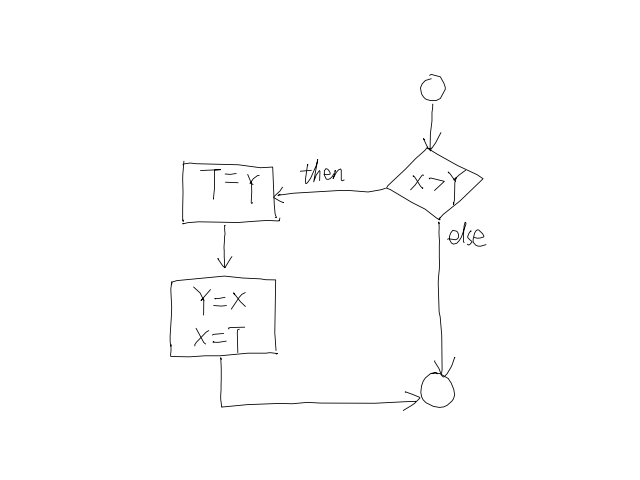 X>Y
then
else
T=Y
Y=X
X=T